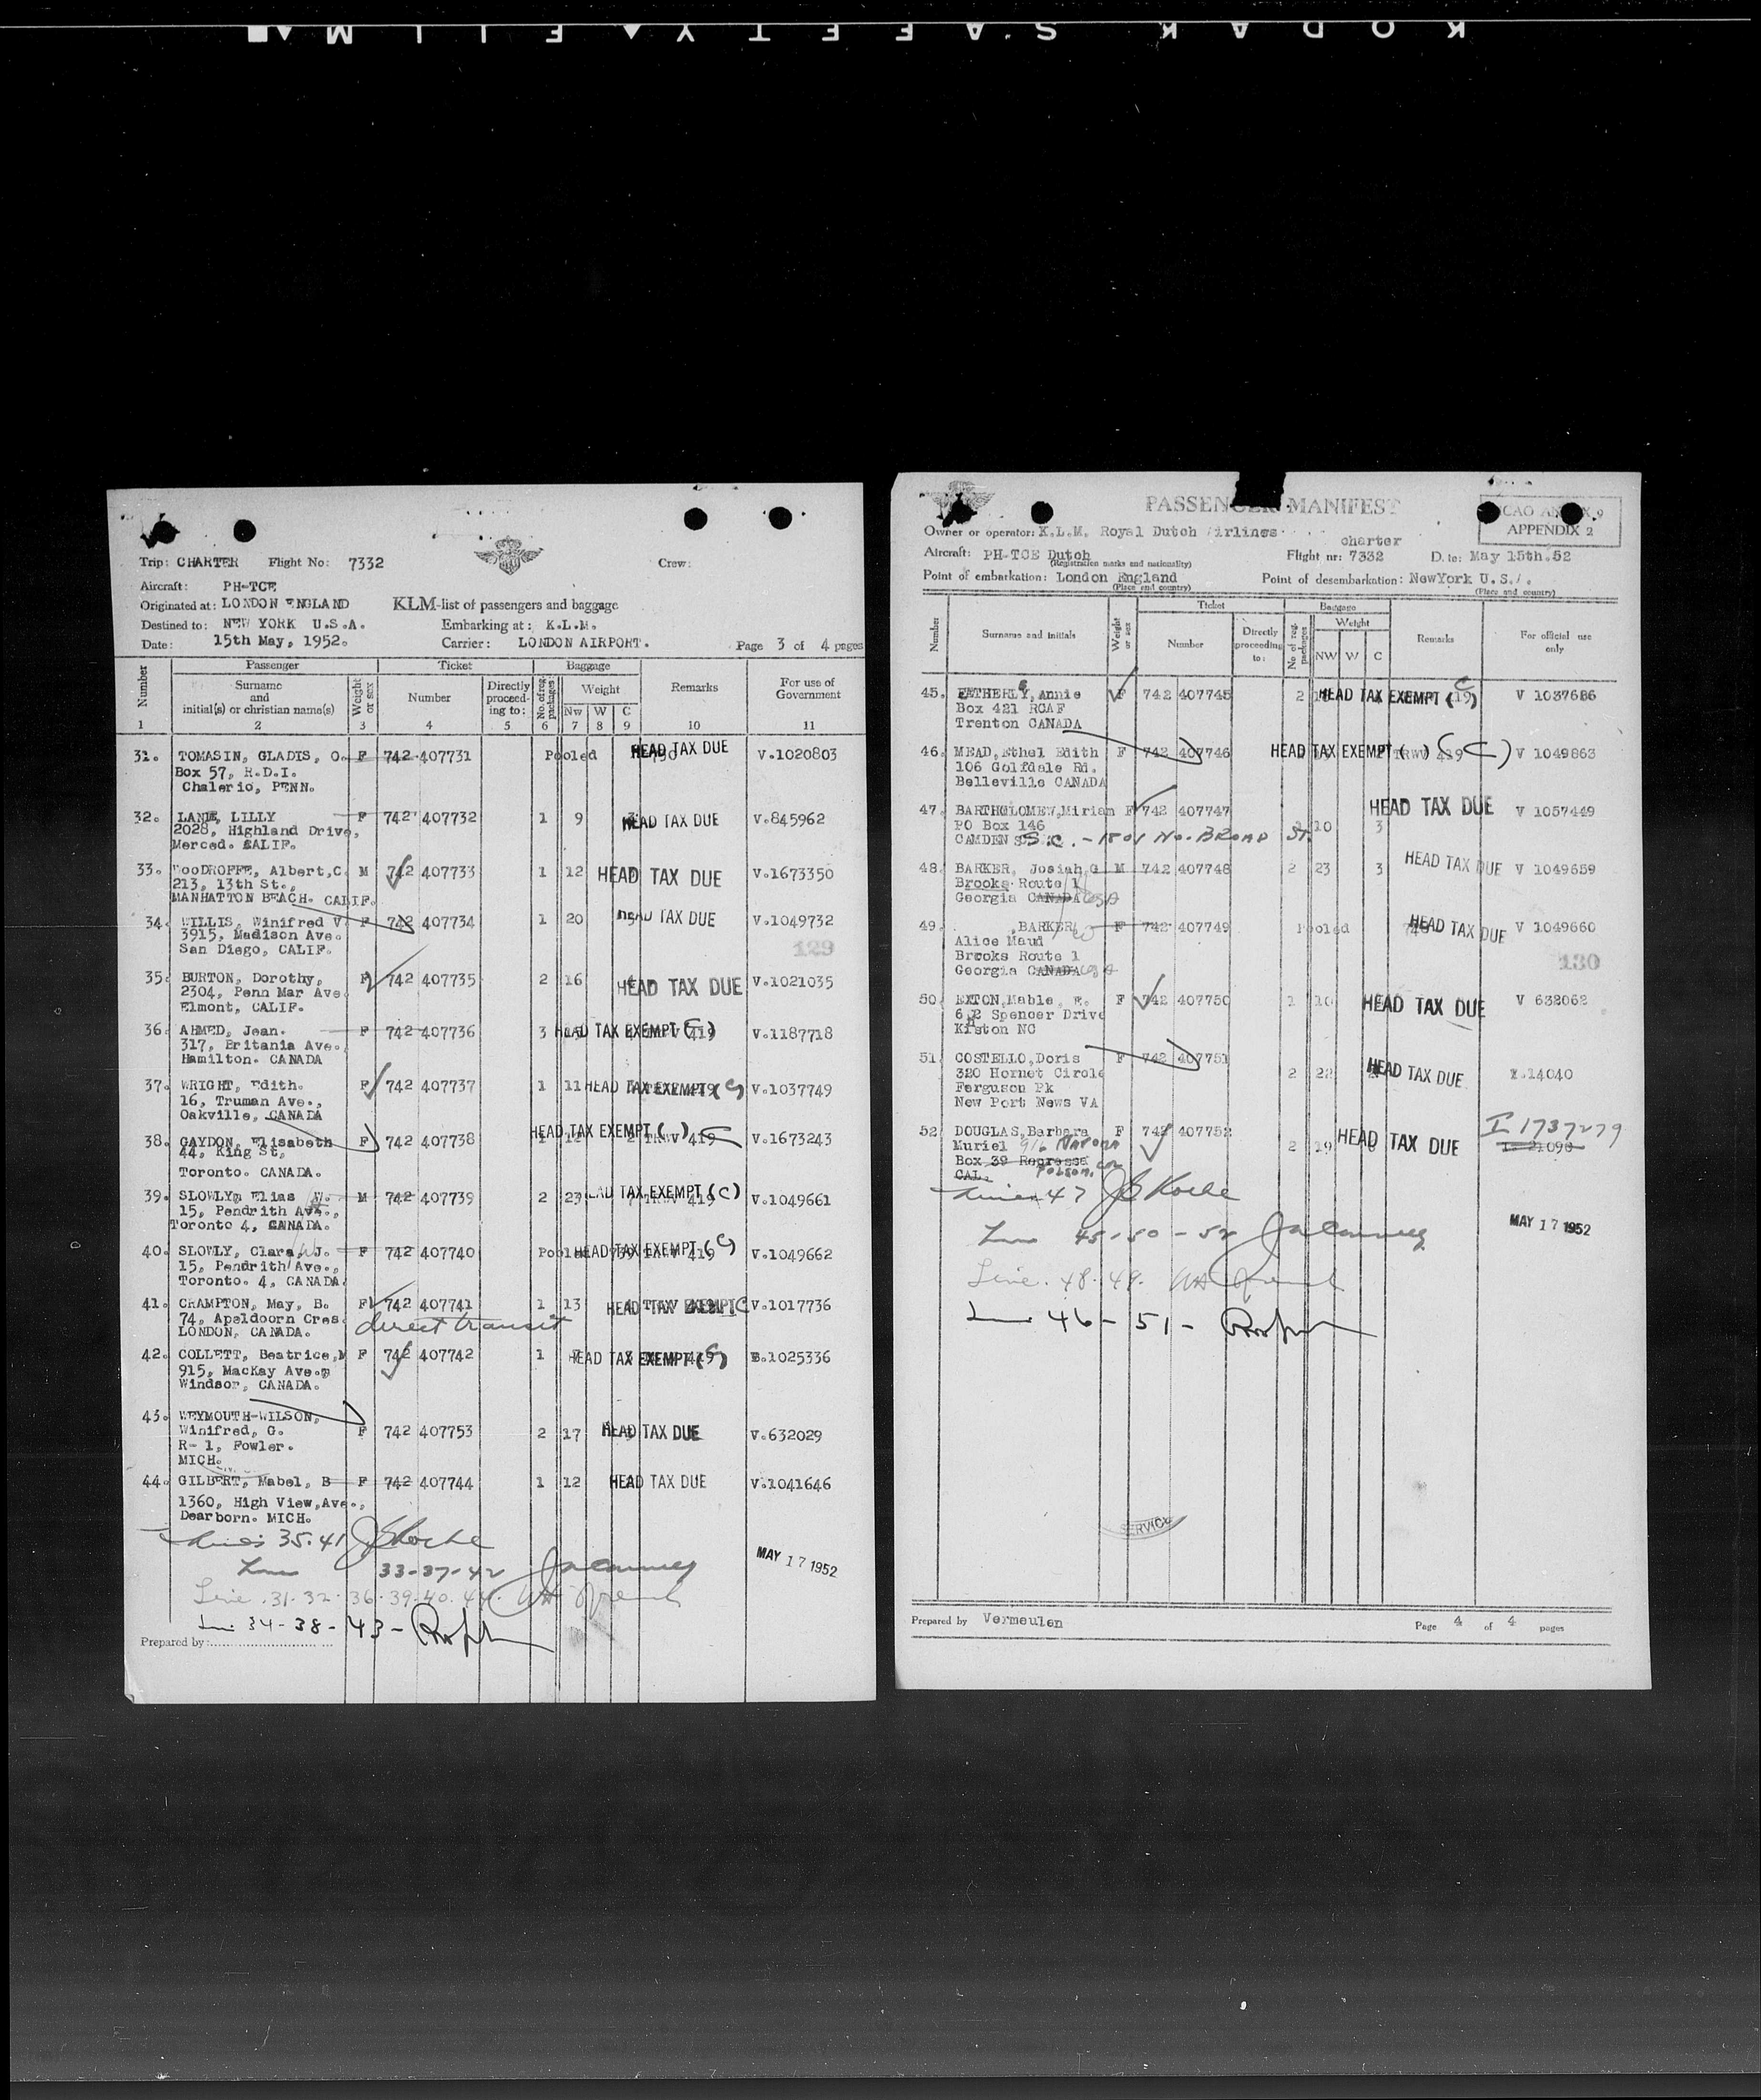 KODAK SAFETY FILM
Trip: CHARTER Flight No: 7332 Crew:
Aircraft: PH-TCE
Originated at: LONDON ENGLAND KLM-list of passengers and baggage
Destined to: NEW YORK U.S.A. Embarking at: K.L.M.
Date: 15th May, 1952. Carrier: LONDON AIRPORT. Page 3 of 4 pages
Number Passenger Ticket Baggage
Surname and initial(s) or christian name(s) Weight or sex Number Directly proceeding to: No. of reg. packages Weight Remarks For use of Government
Nw W C
1 2 3 4 5 6 7 8 9 10 11
31. TOMASIN, GLADYS, O. F 742 407731 Pooled HEAD TAX DUE V.1020803
Box 57, R.D.I.
Chalerio, PENN.
32. LANE, LILLY F 742 407732 1 9 HEAD TAX DUE V.845962
2028, Highland Drive,
Merced. CALIF.
33. WooDROFFE, Albert,C. M 742 407733 1 12 HEAD TAX DUE V.1673350
213, 13th St.,
MANHATTON BEACH. CALIF.
34. WILLIS, Winifred V. F 742 407734 1 20 HEAD TAX DUE V.1049732
3915, Madison Ave.
San Diego, CALIF. 129
35. BURTON, Dorothy, F 742 407735 2 16 HEAD TAX DUE V.1021035
2304, Penn Mar Ave
Elmont, CALIF.
36. AHMED, Jean. F 742 407736 3 HEAD TAX EXEMPT (C) 419 V.1187718
317, Britania Ave.,
Hamilton. CANADA
37. WRIGHT, Edith. F 742 407737 1 11 HEAD TAX EXEMPT (C) V.1037749
16, Truman Ave.,
Oakville, CANADA
38. GAYDON, Elisabeth F 742 407738 HEAD TAX EXEMPT ( ) C TRWV 419 V.1673243
44, King St,
Toronto. CANADA.
39. SLOWLY, Elias W. M 742 407739 2 23 HEAD TAX EXEMPT (C) 419 V.1049661
15, Pendrith Ave.,
Toronto 4, CANADA.
40. SLOWLY, Clara, J. F 742 407740 Pooled HEAD TAX EXEMPT (C) 419 V.1049662
15, Pendrith Ave.,
Toronto. 4, CANADA.
41. CRAMPTON, May, B. F 742 407741 1 13 HEAD TAX EXEMPT C V.1017736
74, Apeldoorn Cres. direct transit
LONDON, CANADA.
42. COLLETT, Beatrice,M F 742 407742 1 HEAD TAX EXEMPT (C) 419 1025336
915, MacKay Ave.,
Windsor, CANADA.
43. WEYMOUTH-WILSON,
Winifred, G. F 742 407753 2 17 HEAD TAX DUE V.632029
R- 1, Fowler.
MICH.
44. GILBERT, Mabel, B F 742 407744 1 12 HEAD TAX DUE V.1041646
1360, High View,Ave.,
Dearborn. MICH.
Lines 35.41
Line 33-37-42 MAY 17 1952
Line .31.32.36.39.40.44.
Line 34-38-43-
Prepared by:
PASSENGER MANIFEST ICAO ANNEX 9
APPENDIX 2
Owner or operator: K.L.M. Royal Dutch Airlines charter
Aircraft: PH-TCE Dutch Flight nr: 7332 Date: May 15th.52
(Registration marks and nationality)
Point of embarkation: London England Point of desembarkation: NewYork U.S.A.
(Place and country) (Place and country)
Number Surname and initials Weight or sex Ticket Baggage Remarks For official use only
Number Directly proceeding to: No of reg. packages Weight
NW W C
45. EATHERLY, Annie F 742 407745 2 HEAD TAX EXEMPT (C) V 1037686
Box 421 RCAF
Trenton CANADA
46. MEAD, Ethel Edith F 742 407746 HEAD TAX EXEMPT ( ) (C) TRWV 419 V 1049863
106 Golfdale Rd.
Belleville CANADA
47. BARTHOLOMEW,Miriam F 742 407747 HEAD TAX DUE V 1057449
PO Box 146 10 3
CAMDEN S.C. - 1801 NO. BROAD ST.
48. BARKER, Josiah G M 742 407748 2 23 3 HEAD TAX DUE V 1049659
Brooks Route 1
Georgia CANADA USA
49. ,BARKER, F 742 407749 Pooled HEAD TAX DUE V 1049660
Alice Maud
Brooks Route 1
Georgia CANADA 130
50. EXTON,Mable, E. F 742 407750 1 10 HEAD TAX DUE V 632062
Spencer Drive
Kinston NC
51. COSTELLO,Doris F 742 407751
320 Hornet Circle 2 22 HEAD TAX DUE 14040
Ferguson Pk
New Port News VA
52 DOUGLAS,Barbara F 742 407752 I 1737279
Muriel 2 19 HEAD TAX DUE
Box 39 Repressa
CAL,
Lines 47
Line 45-50-52 MAY 17 1952
Line. 48.49.
Line 46-51-
SERVICE
Prepared by Vermeulen Page 4 of 4 pages